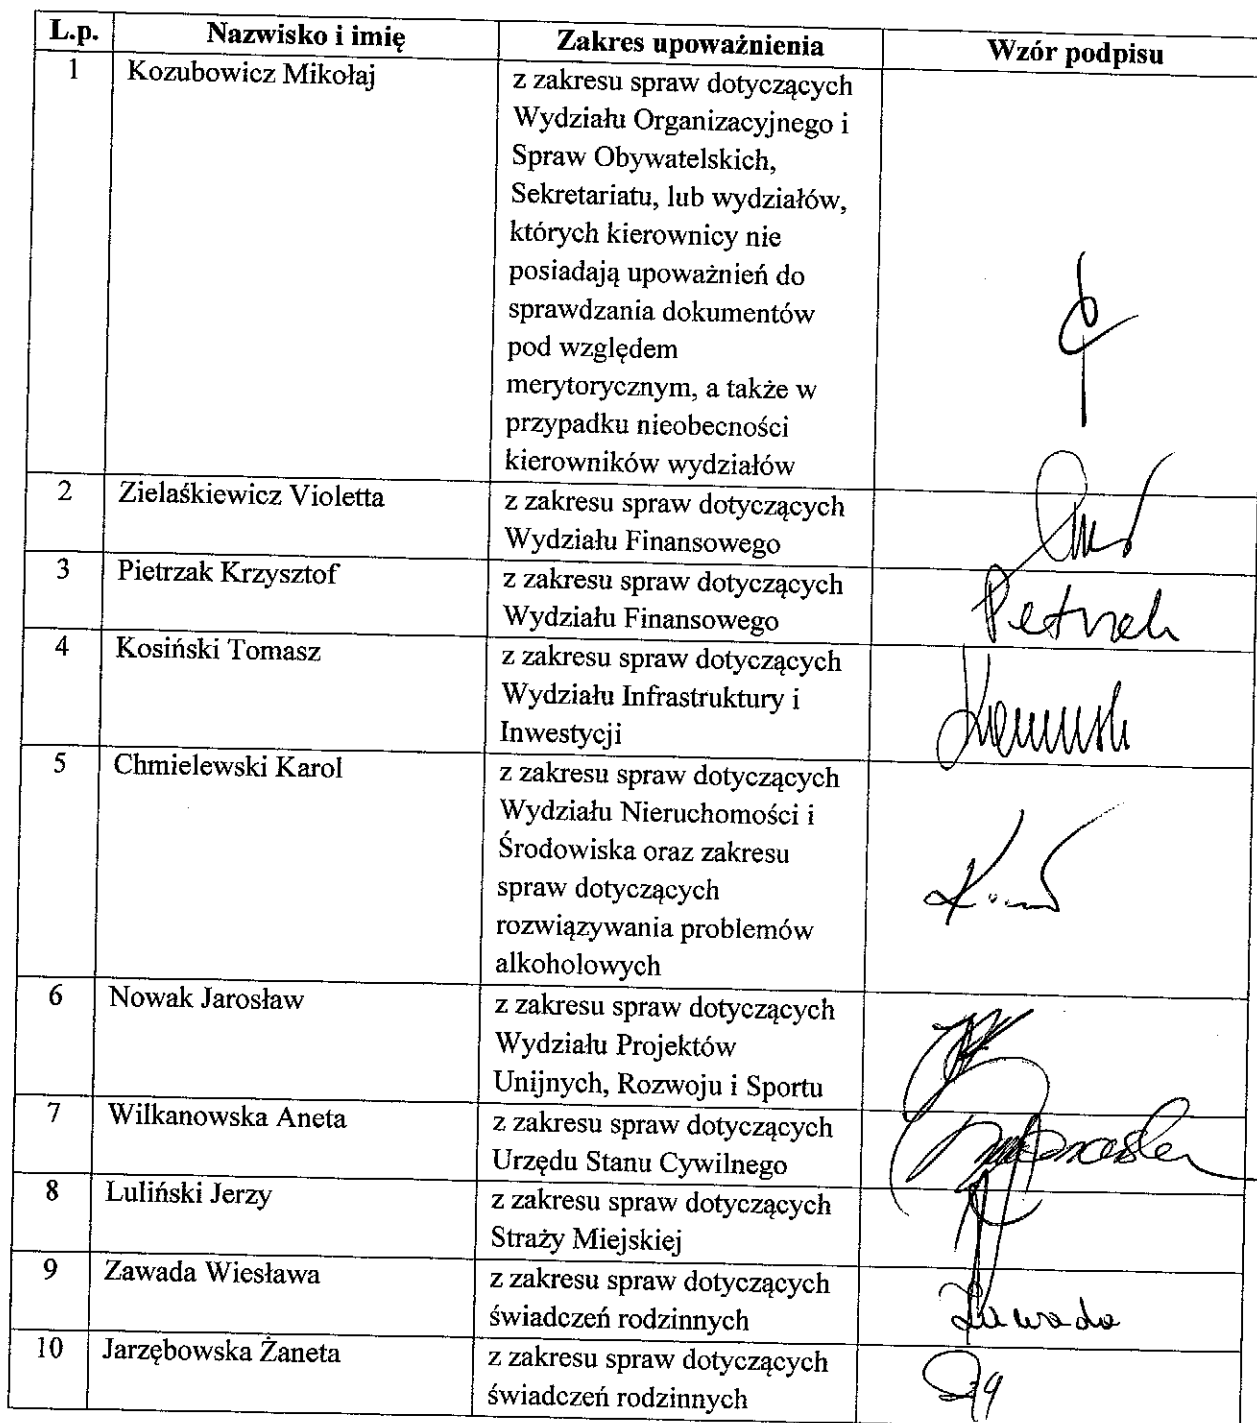 L.p. Nazwisko i imię Zakres upoważnienia Wzór podpisu
1 Kozubowicz Mikołaj z zakresu spraw dotyczących
Wydziału Organizacyjnego i
Spraw Obywatelskich,
Sekretariatu, lub wydziałów,
których kierownicy nie
posiadają upoważnień do
sprawdzania dokumentów
pod względem
merytorycznym, a także w
przypadku nieobecności
kierowników wydziałów
2 Zielaśkiewicz Violetta z zakresu spraw dotyczących
Wydziału Finansowego
3 Pietrzak Krzysztof z zakresu spraw dotyczących
Wydziału Finansowego
4 Kosiński Tomasz z zakresu spraw dotyczących
Wydziału Infrastruktury i
Inwestycji
5 Chmielewski Karol z zakresu spraw dotyczących
Wydziału Nieruchomości i
Środowiska oraz zakresu
spraw dotyczących
rozwiązywania problemów
alkoholowych
6 Nowak Jarosław z zakresu spraw dotyczących
Wydziału Projektów
Unijnych, Rozwoju i Sportu
7 Wilkanowska Aneta z zakresu spraw dotyczących
Urzędu Stanu Cywilnego
8 Luliński Jerzy z zakresu spraw dotyczących
Straży Miejskiej
9 Zawada Wiesława z zakresu spraw dotyczących
świadczeń rodzinnych Zawada
10 Jarzębowska Żaneta z zakresu spraw dotyczących
świadczeń rodzinnych